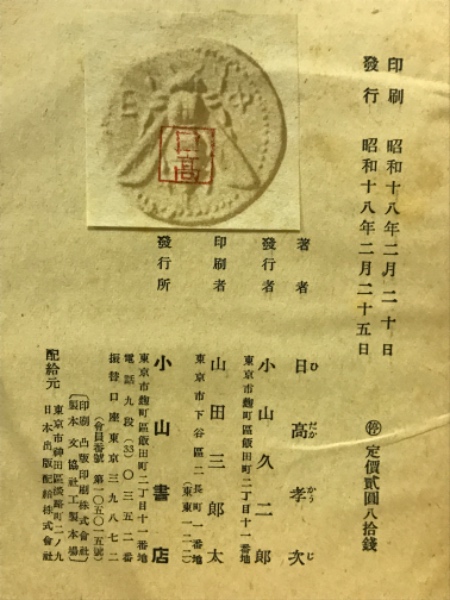 印刷 昭和十八年二月二十日
發行 昭和十八年二月二十五日
停 定價貳圓八拾錢
著者 日高孝次
ひ だか かう じ
發行者 小山久二郎
東京市麹町區飯田町二丁目十一番地
印刷者 山田三郎太
東京市下谷區二長町一番地
(東東一二二)
發行所 小山書店
東京市麹町區飯田町二丁目十一番地
電話九段(33)〇三五二番
振替口座東京三九八七二
(會員番號 第一〇五〇一五號)
印刷 凸版印刷株式會社
製本 文協社工製本場
配給元 東京市神田區淡路町二ノ九
日本出版配給株式會社
日高